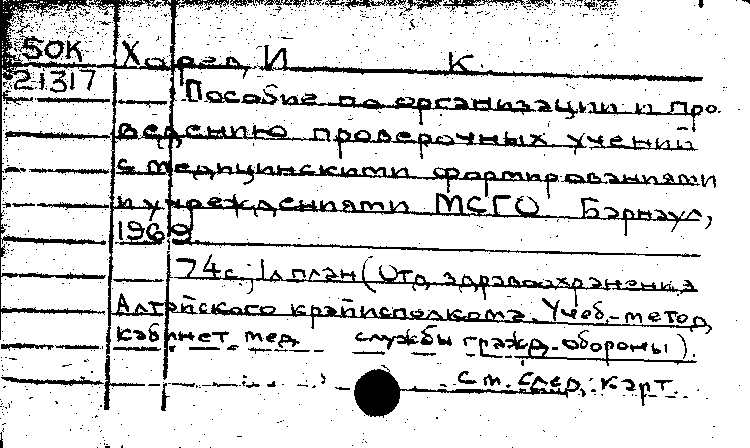 50К Хорев, И К.
21317 Пособие по организации и про
ведению проверочных учений
с медицинскими формированиями
и учреждениями МСГО Барнаул,
1969
74с.; 1л план (Отд здравоохранения
Алтайского крайисполкома. Учеб.-метод,
кабинет мед службы гражд. обороны).
См. след. карт.